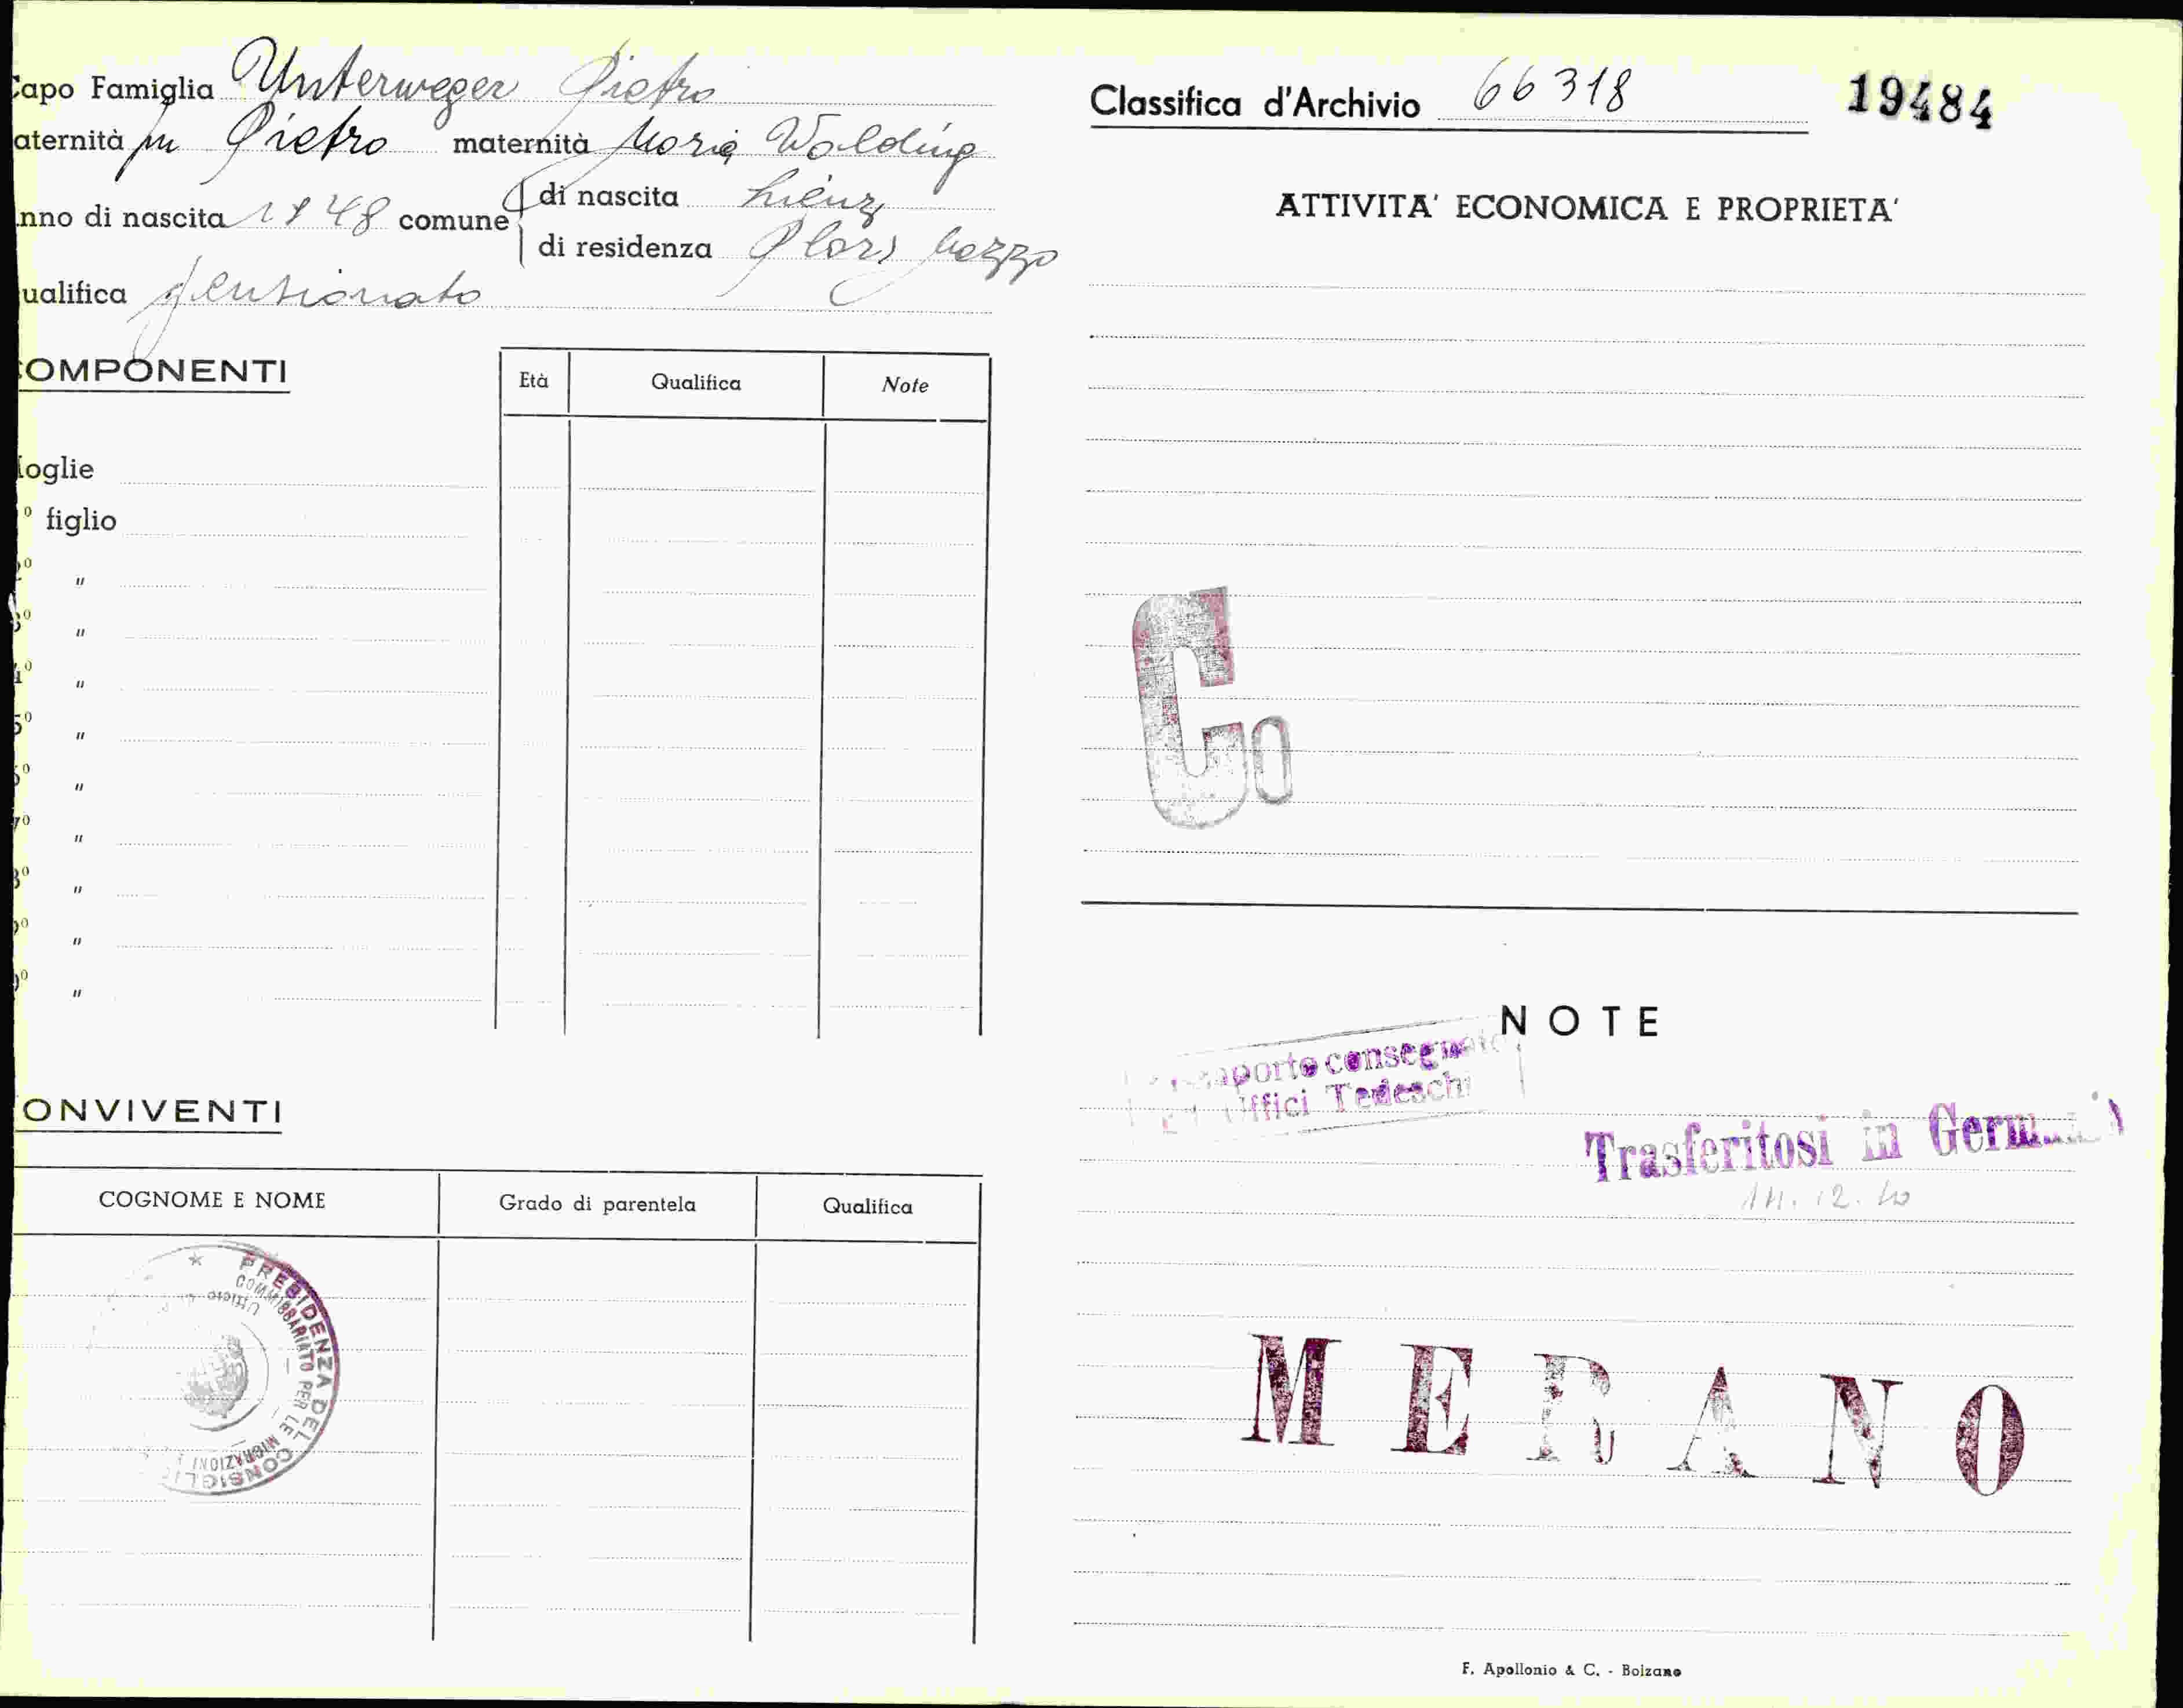 Capo Famiglia Unterweger Pietro
aternità fu Pietro maternità Maria Walding
nno di nascita 1848 comune di nascita Lienz
di residenza Plars mezzo
ualifica pensionato
COMPONENTI
Età Qualifica Note
oglie
º figlio
2º "
3º "
4º "
5º "
6º "
7º "
8º "
9º "
0º "
CONVIVENTI
COGNOME E NOME Grado di parentela Qualifica
PRESIDENZA DEL CONSIGLI
COMMISSARIATO PER LE MIGRAZIONI
Ufficio
Classifica d'Archivio 66318 19484
ATTIVITA' ECONOMICA E PROPRIETA'
Co
NOTE
aporto consegnato
Uffici Tedeschi
Trasferitosi in Germania
14.12.40
MERANO
F. Apollonio & C. - Bolzano